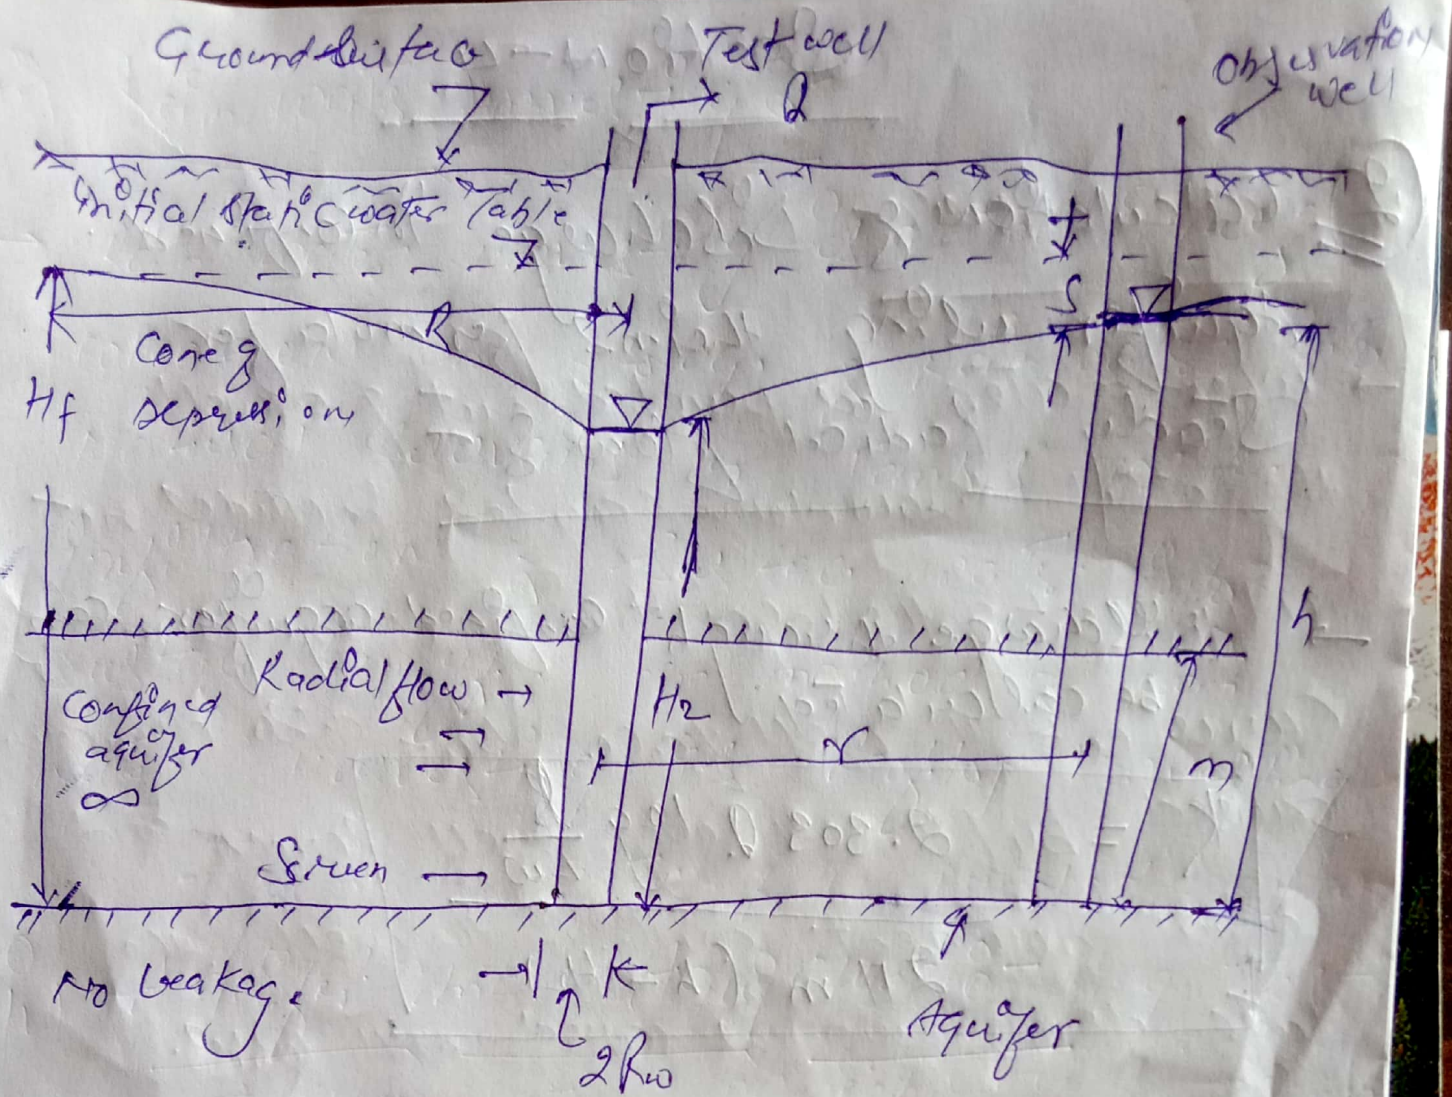 Ground Surface
Test well
Q
Observation
well
Initial Static water Table
S
R
Cone of
Depression
Hf
h
Radial flow →
H2
Confined
aquifer
∞
r
m
Screen →
No Leakage
2Rw
Aquifer